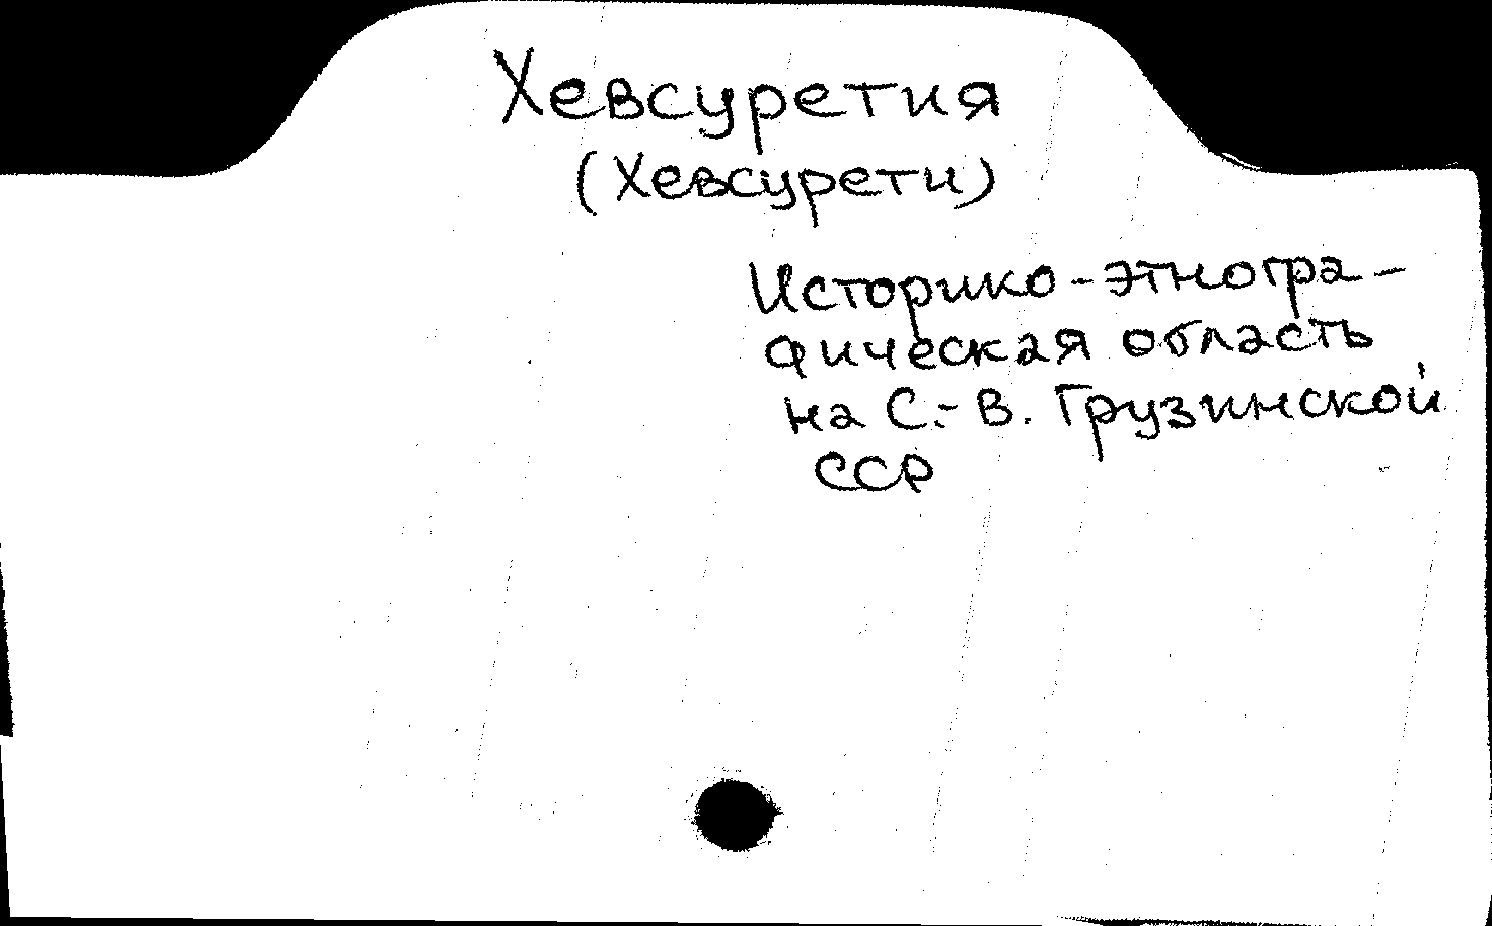 Хевсуретия
(Хевсурети)
Историко-этногра-
фическая область
на С.-В. Грузинской
ССР